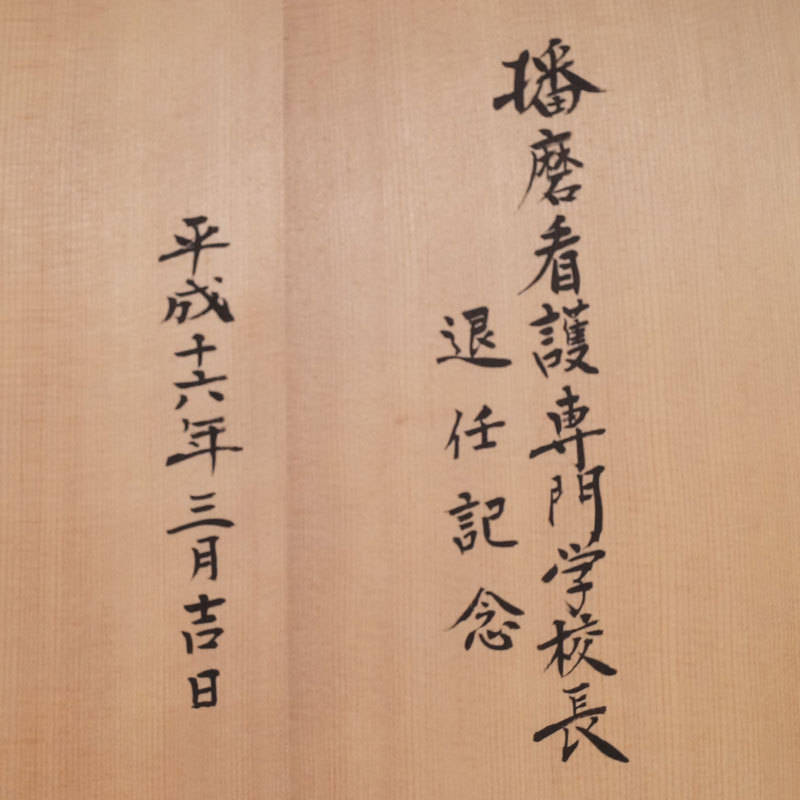 播磨看護専門学校長
退任記念
平成十六年三月吉日